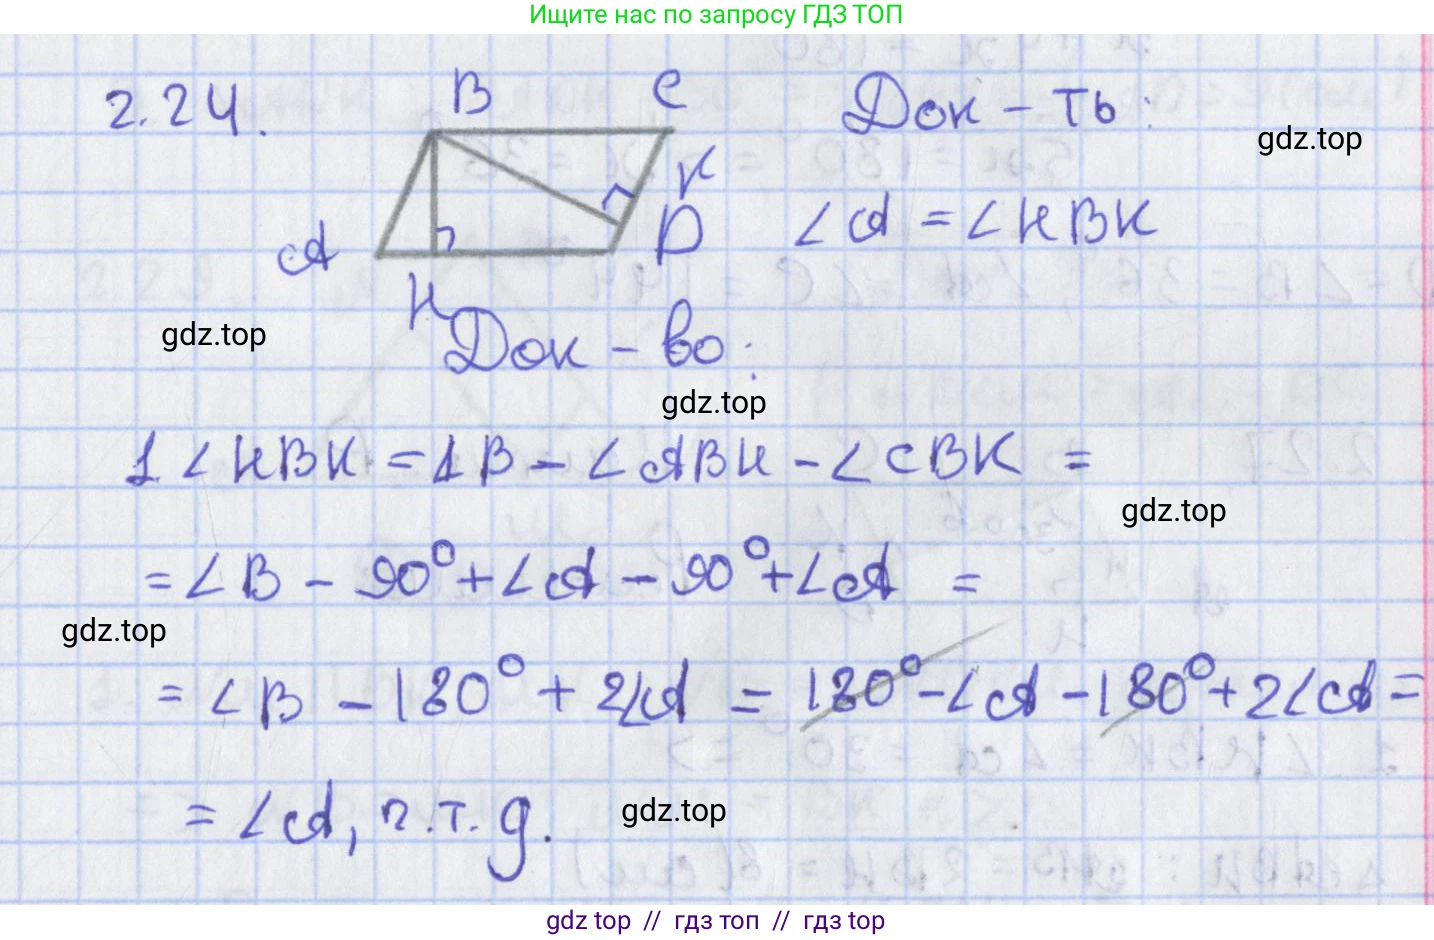 Ищите нас по запросу ГДЗ ТОП
2.24. B C Док-ть:
gdz.top
K
A D ∠A = ∠HBK
H
gdz.top
Док-во:
gdz.top
1. ∠HBK = ∠B - ∠ABH - ∠CBK =
gdz.top
= ∠B - 90° + ∠A - 90° + ∠A =
gdz.top
= ∠B - 180° + 2∠A = 180° - ∠A - 180° + 2∠A =
= ∠A, ч.т.д.
gdz.top
gdz top // гдз топ // гдз top